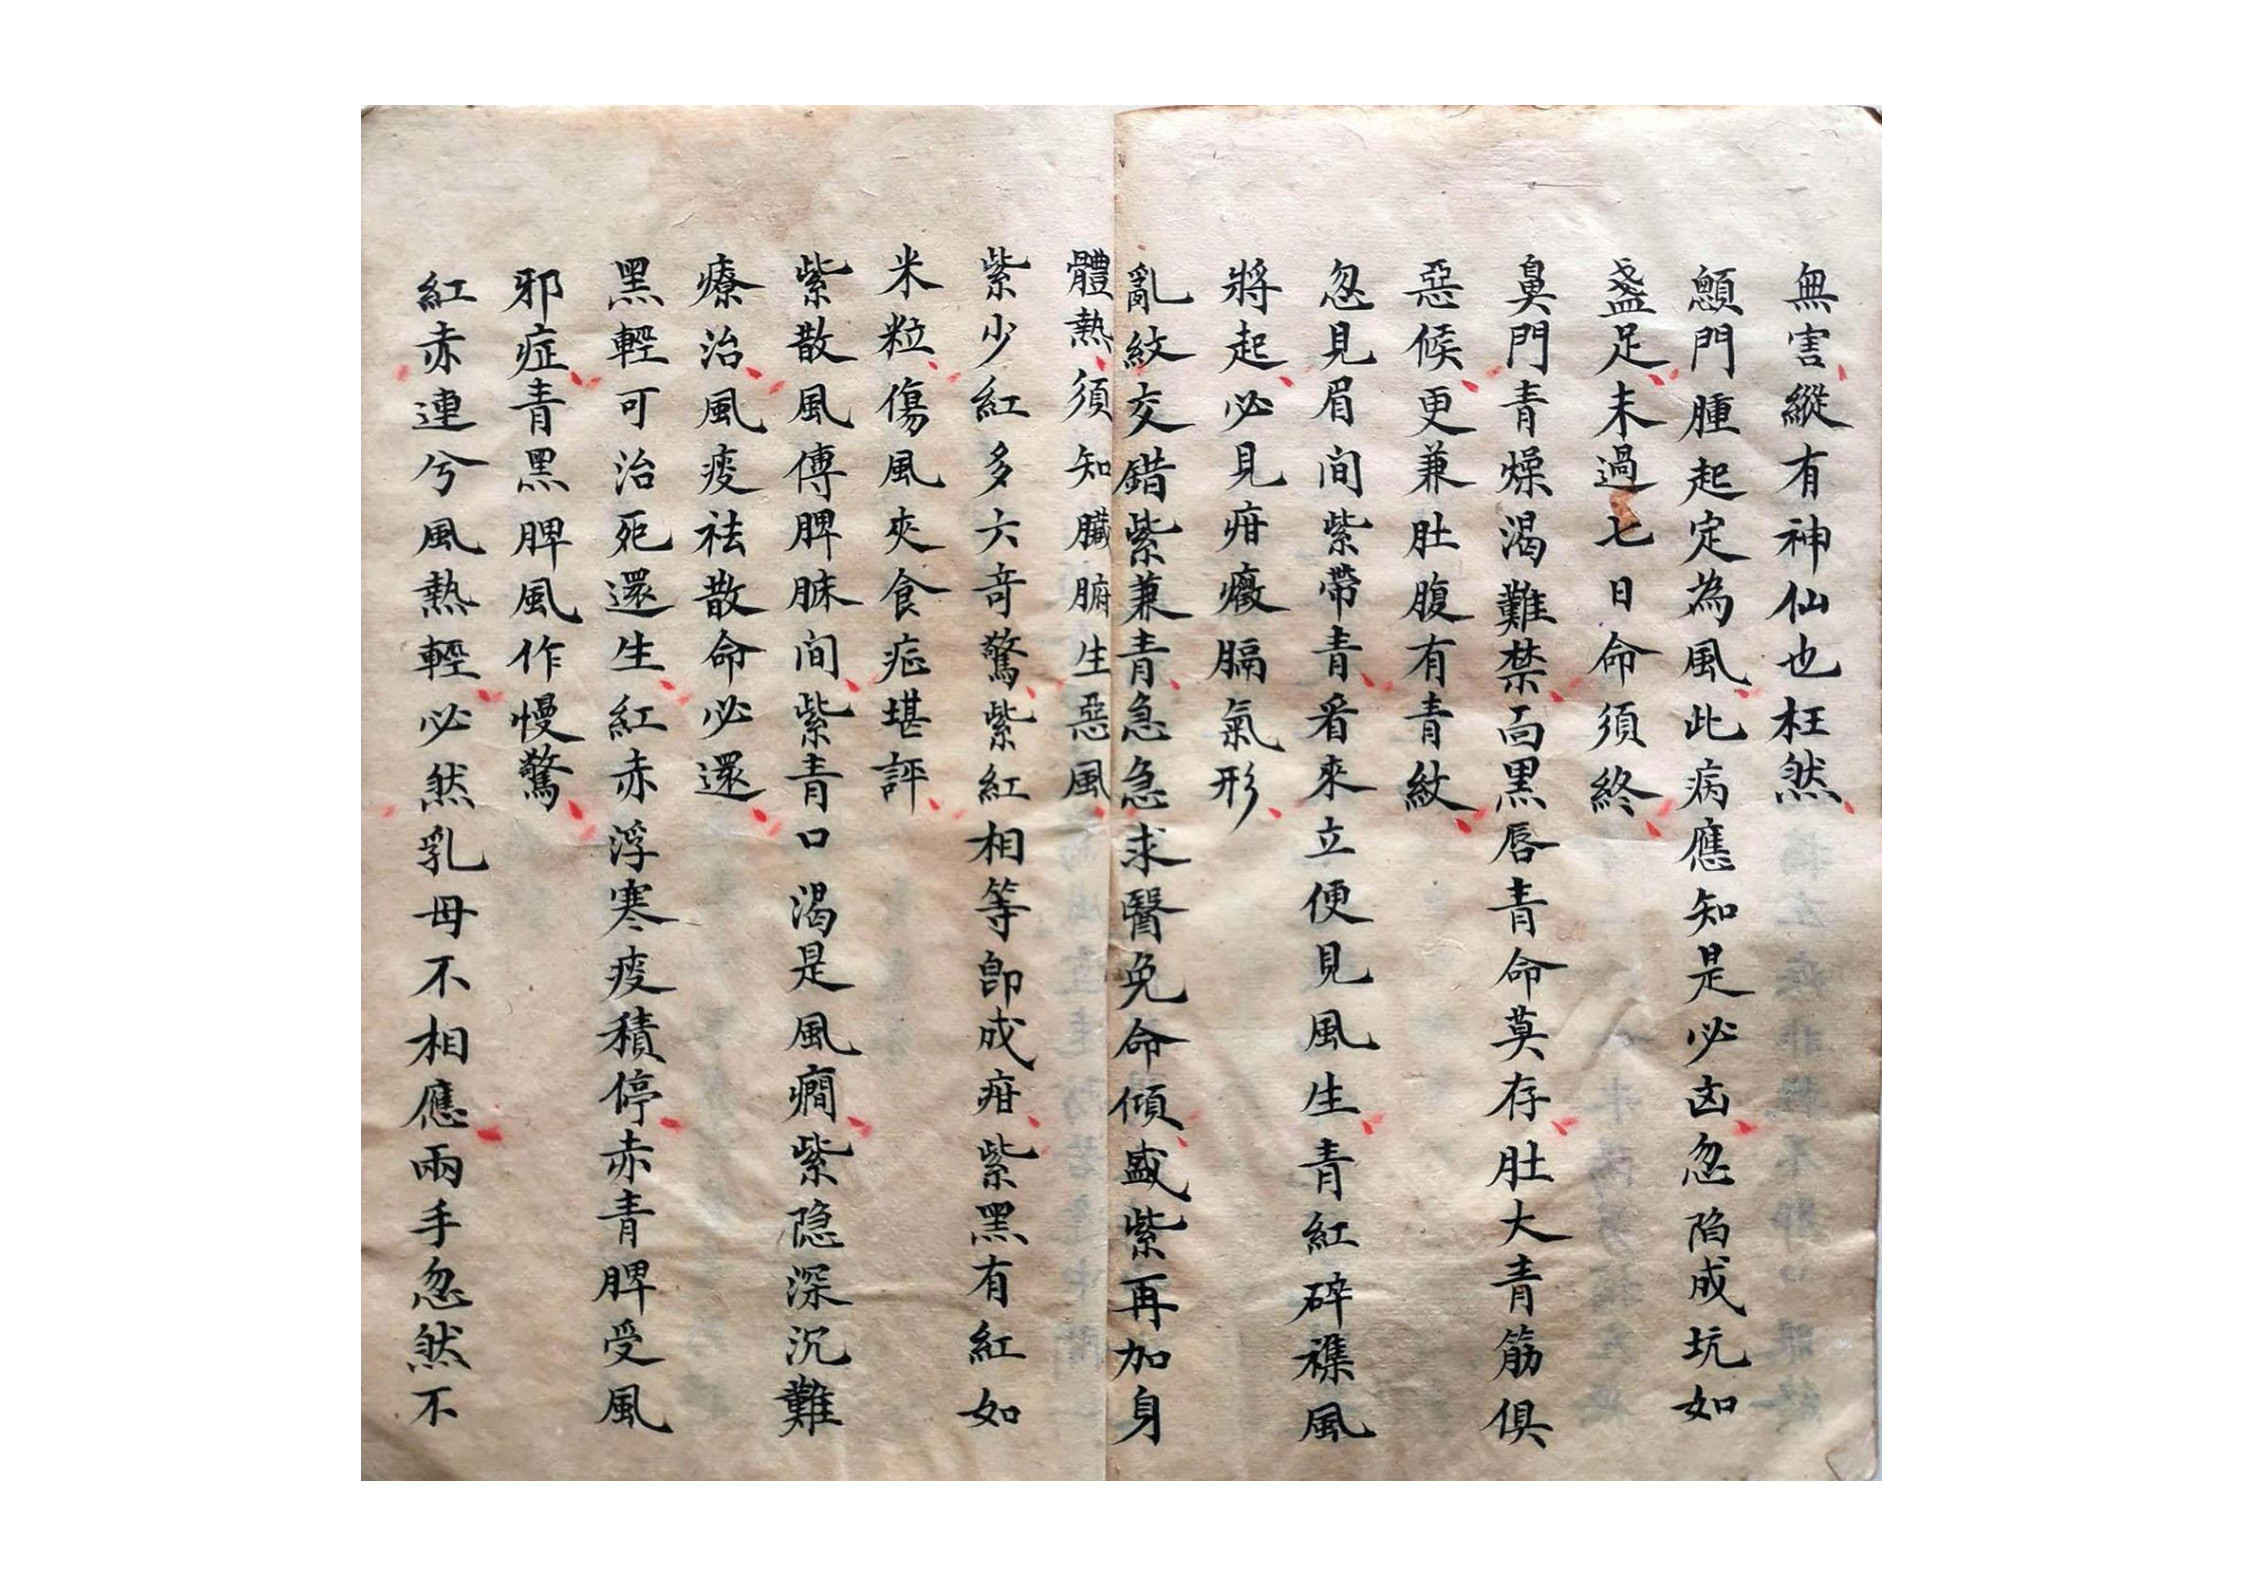 無害縱有神仙也枉然
顖門腫起定為風此病應知是必凶忽陷成坑如
盞足未過七日命須終
鼻門青燥渴難禁面黑唇青命莫存肚大青筋俱
惡候更兼肚腹有青紋
忽見眉间紫帶青看來立便見風生青紅碎襍風
將起必見疳癥膈氣形
亂紋交錯紫兼青急急求醫免命傾盛紫再加身
體熱須知臟腑生惡風
紫少紅多六竒驚紫紅相等卽成疳紫黑有紅如
米粒傷風夾食症堪評
紫散風傳脾脉间紫青口渴是風癇紫隐深沉難
療治風痰祛散命必還
黑輕可治死還生紅赤浮寒痰積停赤青脾受風
邪症青黑脾風作慢驚
紅赤連兮風熱輕必然乳母不相應兩手忽然不